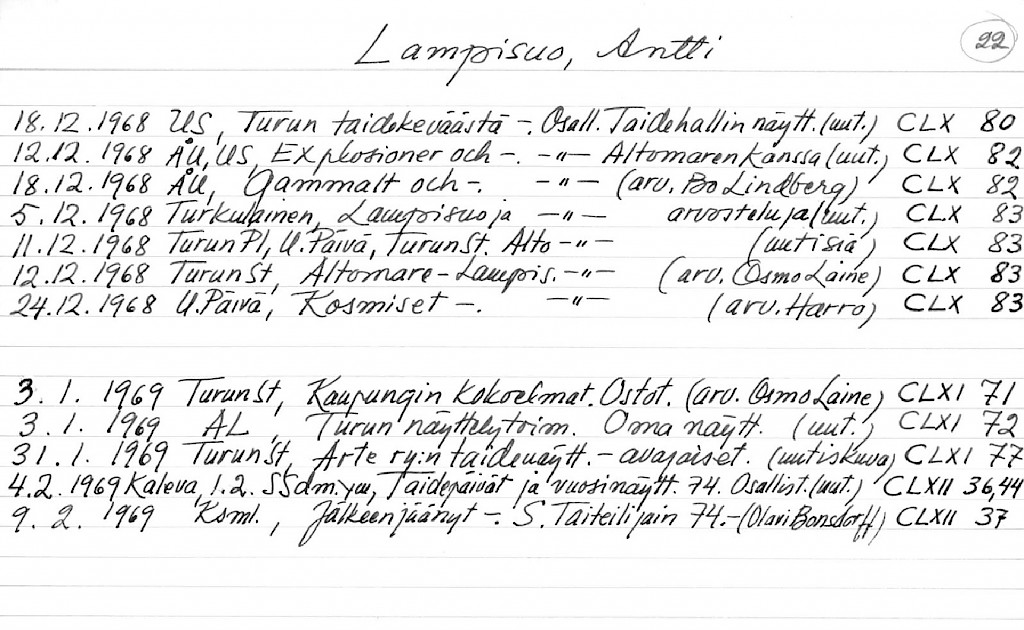 Lampisuo, Antti
22
18.12.1968 US, Turun taidekeväästä -. Osall. Taidehallin näytt. (uut.) CLX 80
12.12.1968 ÅU, US, Explosioner och -. -"- Altomaren kanssa (uut.) CLX 82
18.12.1968 ÅU, Gammalt och -. -"- (arv. Bo Lindberg) CLX 82
5.12.1968 Turkulainen, Lampisuo ja -"- arvosteluja (uut.) CLX 83
11.12.1968 Turun Pl, U. Päivä, Turun St. Alto -"- (uutisia) CLX 83
12.12.1968 Turun St, Altomare - Lampis. -"- (arv. Osmo Laine) CLX 83
24.12.1968 U. Päivä, Kosmiset -. -"- (arv. Harro) CLX 83
3.1.1969 Turun St, Kaupungin kokoelmat. Ostot. (arv. Osmo Laine) CLXI 71
3.1.1969 AL, Turun näyttelytoim. Oma näytt. (uut.) CLXI 72
31.1.1969 Turun St, Arte ry:n taidenäytt. - avajaiset. (uutiskuva) CLXI 77
4.2.1969 Kaleva, 1.2. SSdm. ym, Taidepäivät ja vuosinäytt. 74. Osallist. (uut.) CLXII 36,44
9.2.1969 Ksml., Jälkeenjäänyt -. S. Taiteilijain 74. - (Olavi Bonsdorff) CLXII 37